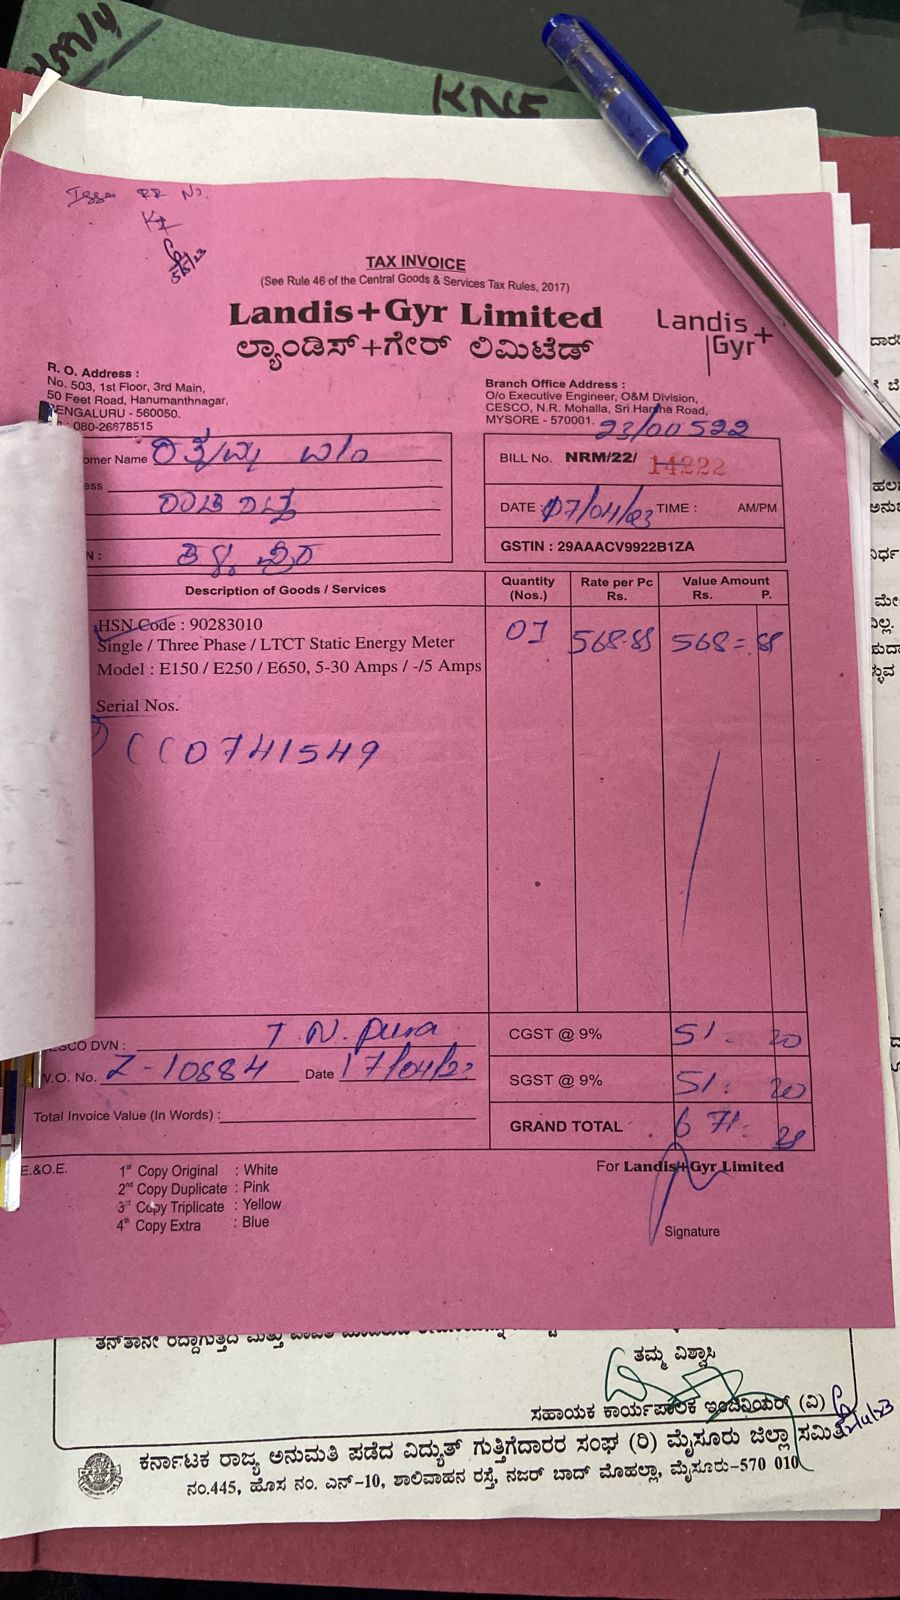 KNE
Issue RR No.
TAX INVOICE
(See Rule 46 of the Central Goods & Services Tax Rules, 2017)
Landis+Gyr Limited
ಲ್ಯಾಂಡಿಸ್+ಗೇರ್ ಲಿಮಿಟೆಡ್
Landis+
Gyr
R. O. Address :
No. 503, 1st Floor, 3rd Main,
50 Feet Road, Hanumanthnagar,
BENGALURU - 560050.
: 080-26678515
Branch Office Address :
O/o Executive Engineer, O&M Division,
CESCO, N.R. Mohalla, Sri Harsha Road,
MYSORE - 570001.
23/00522
omer Name
ess
N :
BILL No. NRM/22/ 14222
DATE : 07/04/23 TIME : AM/PM
GSTIN : 29AAACV9922B1ZA
Description of Goods / Services
Quantity (Nos.)
Rate per Pc Rs.
Value Amount Rs. P.
HSN Code : 90283010
Single / Three Phase / LTCT Static Energy Meter
Model : E150 / E250 / E650, 5-30 Amps / -/5 Amps
01 568-88 568=88
Serial Nos.
CC0741549
ESCO DVN : T. N. pura
W.O. No. Z-10684 Date 17/04/23
Total Invoice Value (In Words) :
CGST @ 9% 51. 20
SGST @ 9% 51. 20
GRAND TOTAL 671. 28
E.&O.E.
1st Copy Original : White
2nd Copy Duplicate : Pink
3rd Copy Triplicate : Yellow
4th Copy Extra : Blue
For Landis+Gyr Limited
Signature
ತಮ್ಮ ವಿಶ್ವಾಸಿ
ಸಹಾಯಕ ಕಾರ್ಯಪಾಲಕ ಇಂಜಿನಿಯರ್ (ವಿ)
ಕರ್ನಾಟಕ ರಾಜ್ಯ ಅನುಮತಿ ಪಡೆದ ವಿದ್ಯುತ್ ಗುತ್ತಿಗೆದಾರರ ಸಂಘ (ರಿ) ಮೈಸೂರು ಜಿಲ್ಲಾ ಸಮಿತಿ
ನಂ.445, ಹೊಸ ನಂ. ಎನ್-10, ಶಾಲಿವಾಹನ ರಸ್ತೆ, ನಜರ್ ಬಾದ್ ಮೊಹಲ್ಲಾ, ಮೈಸೂರು-570 010